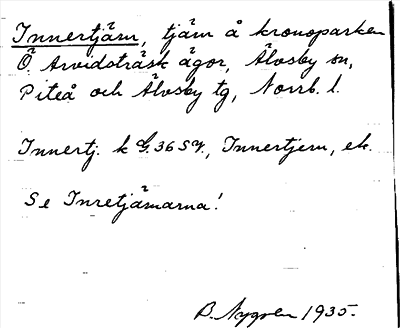 Innertjärn, tjärn å kronoparken
Ö. Arvidsträsk ägor, Älvsby sn,
Piteå och Älvsby tg, Norrb. l.
Innertj. k G. 36 SV., Innertjern, ek.
Se Inretjärnarna!
B. Nygren 1935.